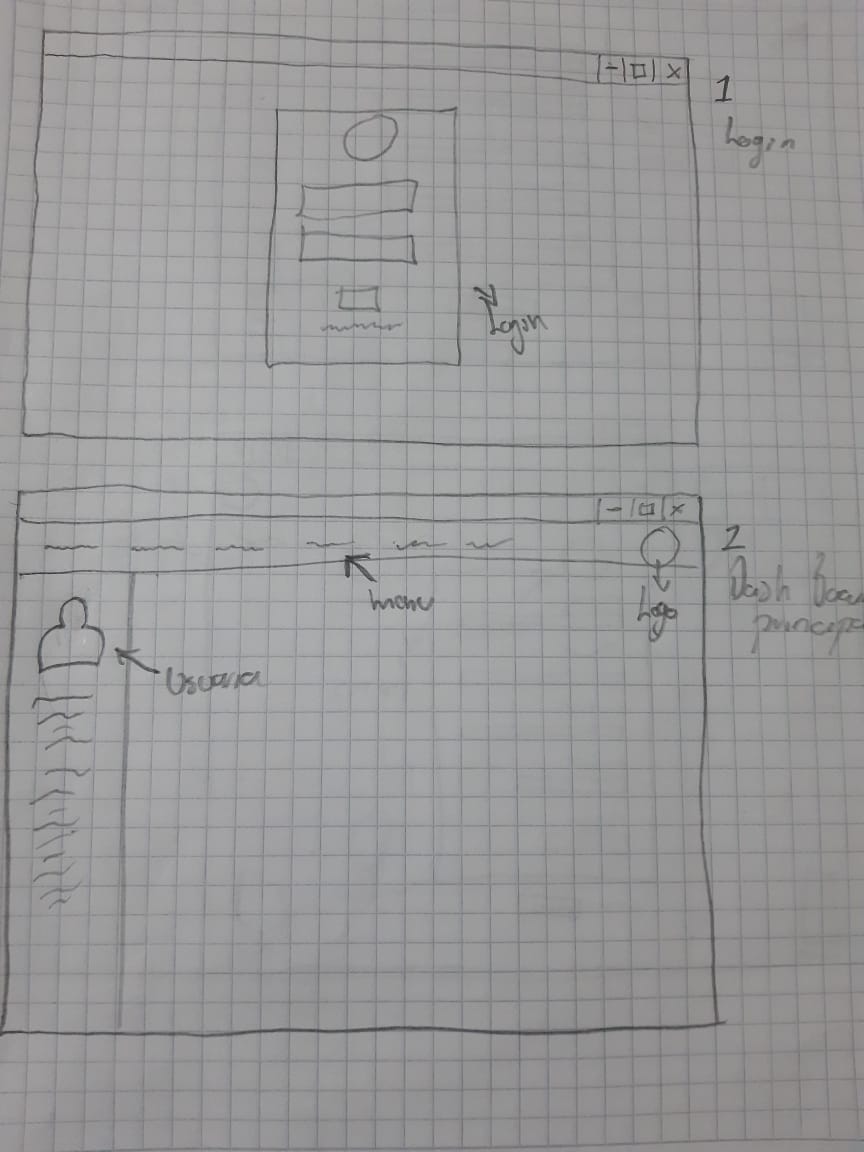 1
Login
Login
2
Dash Boa
princip
menu
Logo
Usuario